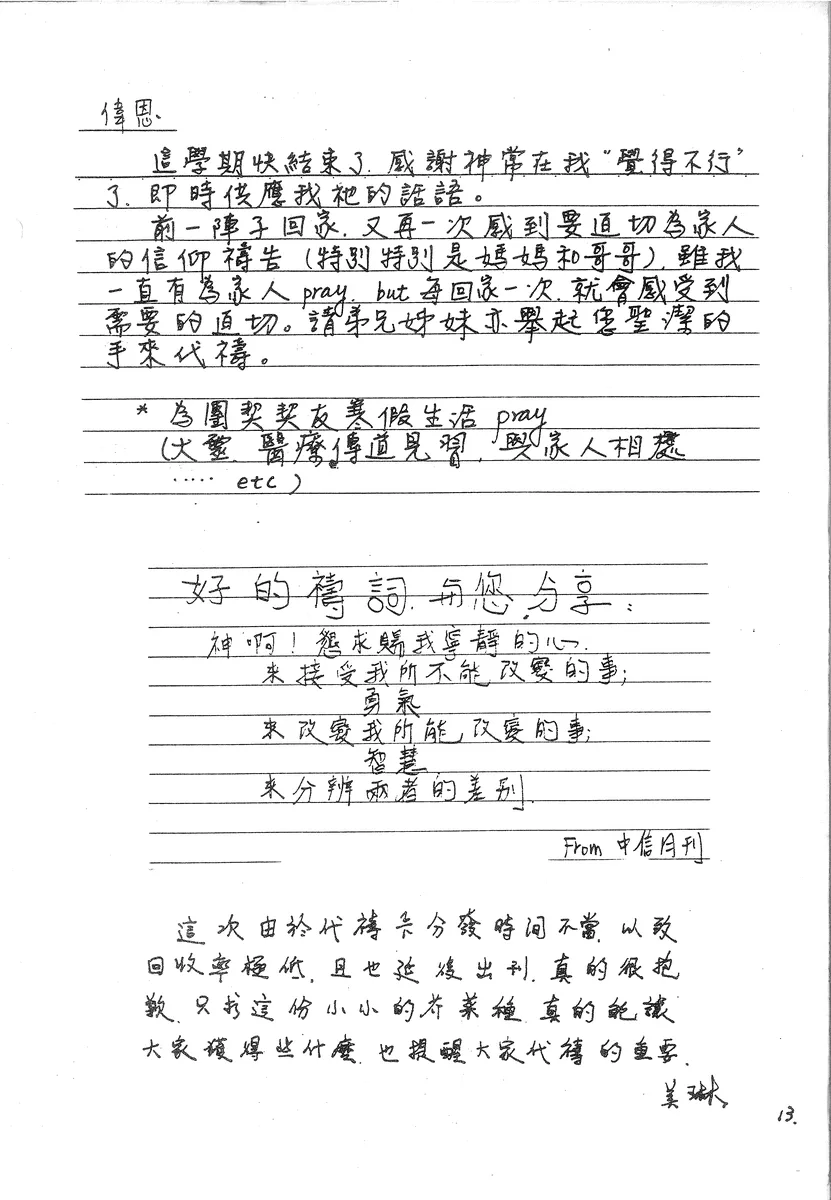 偉恩、
這學期快結束了.感謝神常在我“覺得不行”
了.即時供應我祂的話語。
前一陣子回家.又再一次感到要迫切為家人
的信仰禱告(特別特別是媽媽和哥哥).雖我
一直有為家人pray. but 每回家一次.就會感受到
需要的迫切。請弟兄姊妹亦舉起您聖潔的
手來代禱。
* 為團契契友寒假生活 pray
(大靈.醫療傳道見習.與家人相處
..... etc)
好的禱詞.與您分享:
神啊!懇求賜我寧靜的心.
來接受我所不能改變的事;
勇氣
來改變我所能改變的事;
智慧
來分辨兩者的差別.
From 中信月刊
這次由於代禱卡分發時间不當.以致
回收率極低.且也延後出刊.真的很抱
歉.只求這份小小的芥菜種.真的能讓
大家獲得些什麼.也提醒大家代禱的重要.
美琳
13.